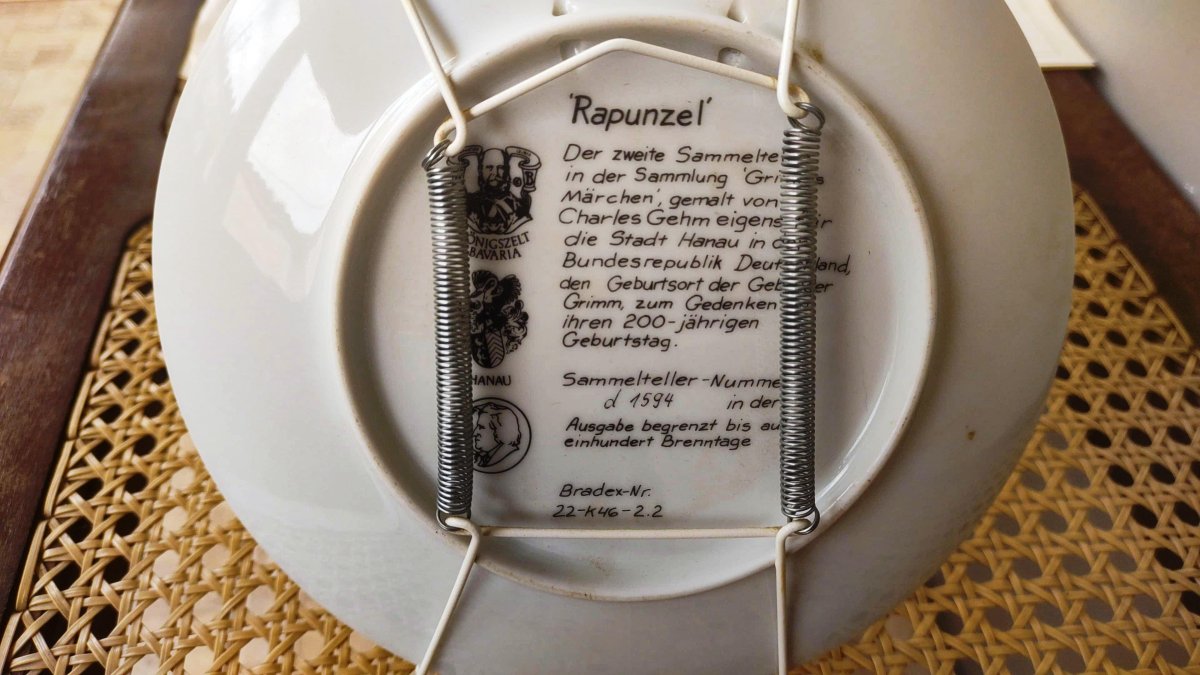 'Rapunzel'
Der zweite Sammelte
in der Sammlung 'Gri s
Märchen', gemalt von
Charles Gehm eigens ir
die Stadt Hanau in d
Bundesrepublik Deut land,
den Geburtsort der Geb der
Grimm, zum Gedenken
ihren 200-jährigen
Geburtstag.
Sammelteller-Numme
d 1594 in der
Ausgabe begrenzt bis au
einhundert Brenntage
Bradex-Nr.
22-K46-2.2
ÖNIGSZELT
BAVARIA
HANAU